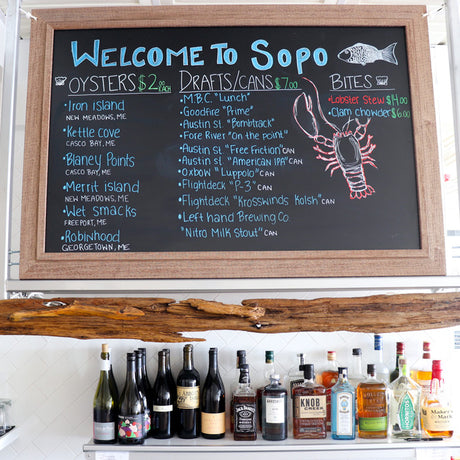 WELCOME TO SOPO
OYSTERS $2.00 EACH
• Iron island
NEW MEADOWS, ME
• Kettle cove
CASCO BAY, ME
• Blaney Points
CASCO BAY, ME
• Merrit island
NEW MEADOWS, ME
• Wet smacks
FREEPORT, ME
• Robinhood
GEORGETOWN, ME
DRAFTS/CANS $7.00
• M.B.C. "Lunch"
• Goodfire "Prime"
• Austin st. "Bombtrack"
• Fore River "On the point"
• Austin st. "Free Friction" CAN
• Austin st. "American IPA" CAN
• Oxbow "Luppolo" CAN
• Flightdeck "P-3" CAN
• Flightdeck "Krosswinds Kolsh" CAN
• Left hand Brewing Co.
"Nitro Milk Stout" CAN
BITES
• Lobster Stew $14.00
• Clam chowder $6.00
JACK DANIEL'S
KNOB CREEK
Maker's Mark